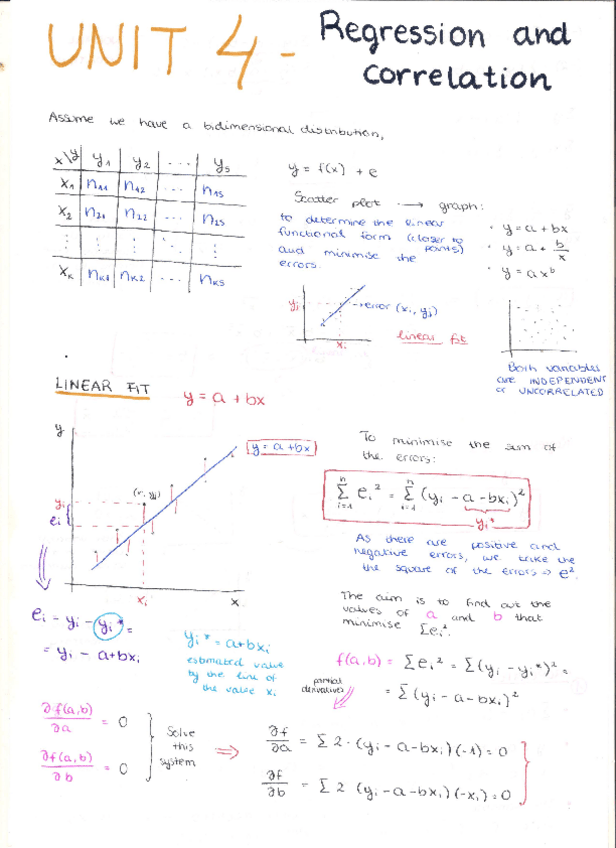 UNIT 4 - Regression and
correlation
Assume we have a bidimensional distribution,
x\y y₁ y₂ ... y₅
x₁ n₁₁ n₁₂ ... n₁₅
x₂ n₂₁ n₂₂ ... n₂₅
⋮ ⋮ ⋮ ⋱ ⋮
xₖ nₖ₁ nₖ₂ ... nₖ₅
y = f(x) + e
Scatter plot → graph:
to determine the linear
functional form (closer to
points)
and minimise the
errors.
• y = a + bx
• y = a + b/x
• y = a xᵇ
yⱼ
error (xᵢ, yⱼ)
xᵢ
linear fit
Both variables
are INDEPENDENT
or UNCORRELATED
LINEAR FIT y = a + bx
y
y = a + bx
yᵢ
eᵢ
xᵢ
x
To minimise the sum of
the errors:
∑ᵢ₌₁ⁿ eᵢ² = ∑ᵢ₌₁ⁿ (yᵢ - a - bxᵢ)²
yᵢ*
As there are positive and
negative errors, we take the
the square of the errors ⇒ e².
The aim is to find out the
values of a and b that
minimise Σeᵢ².
eᵢ - yᵢ - yᵢ* =
= yᵢ - a+bxᵢ
yᵢ* = a+bxᵢ
estimated value
by the line of
the value xᵢ
f(a,b) = Σeᵢ² = Σ(yᵢ - yᵢ*)² =
= Σ(yᵢ - a - bxᵢ)²
partial
derivatives
∂f(a,b)/∂a = 0
∂f(a,b)/∂b = 0
Solve
this
system
⇒
∂f/∂a = Σ 2 · (yᵢ - a - bxᵢ)(-1) = 0
∂f/∂b = Σ 2 (yᵢ - a - bxᵢ)(-xᵢ) = 0